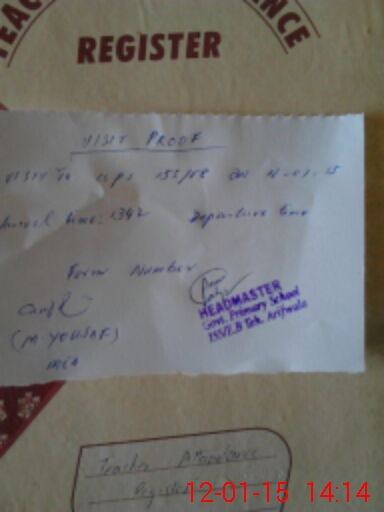 REGISTER
VISIT PROOF
VISIT To GPS 155/EB ON
Arrival time: 1342 Departure time
Form Number
HEADMASTER
Govt. Primary School
155/E.B Teh. Arifwala
(M YOUSAF)
MEA
Teacher Attendance
Register
12-01-15 14:14